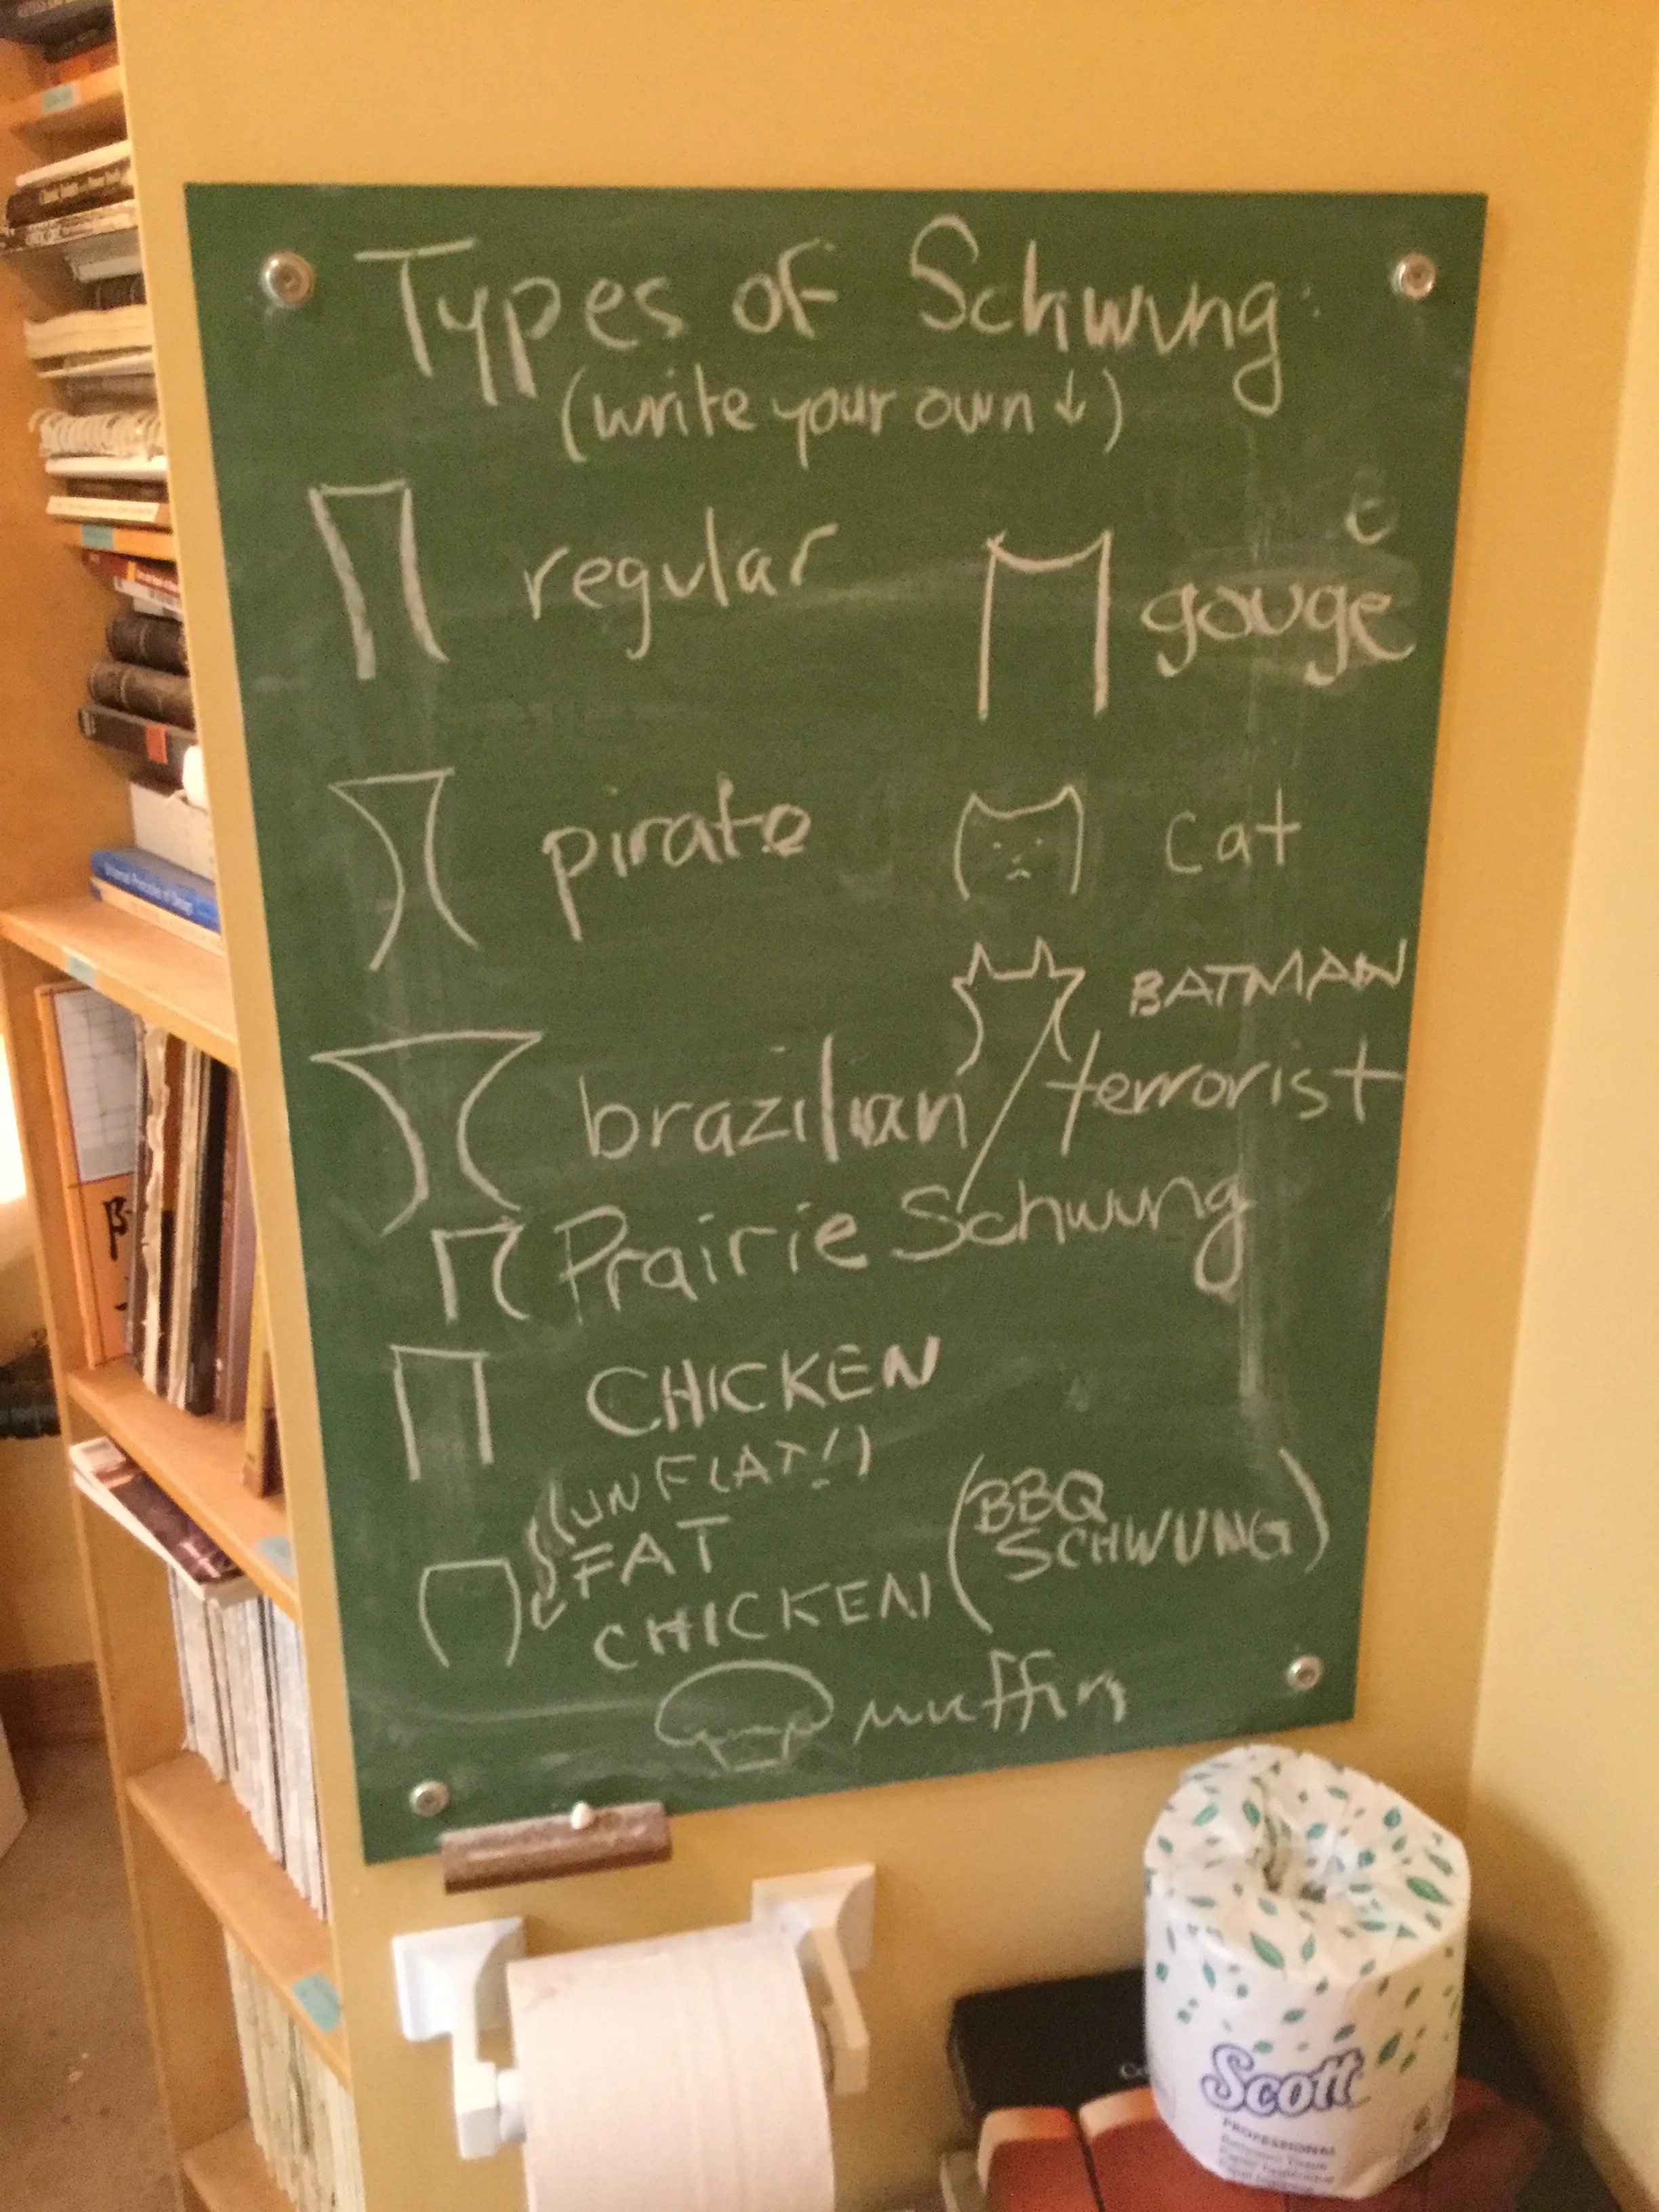 Types of Schwung:
(write your own ↓)
regular
e
gouge
pirate
cat
BATMAN
brazilian
terrorist
Prairie Schwung
CHICKEN
(UNFLAT!)
FAT
CHICKEN
(BBQ
SCHWUNG)
muffin
Universal Principles of Design
β
Scott
PROFESSIONAL
Bathroom Tissue